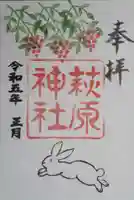 奉拝
萩原
神社
令和五年 正月